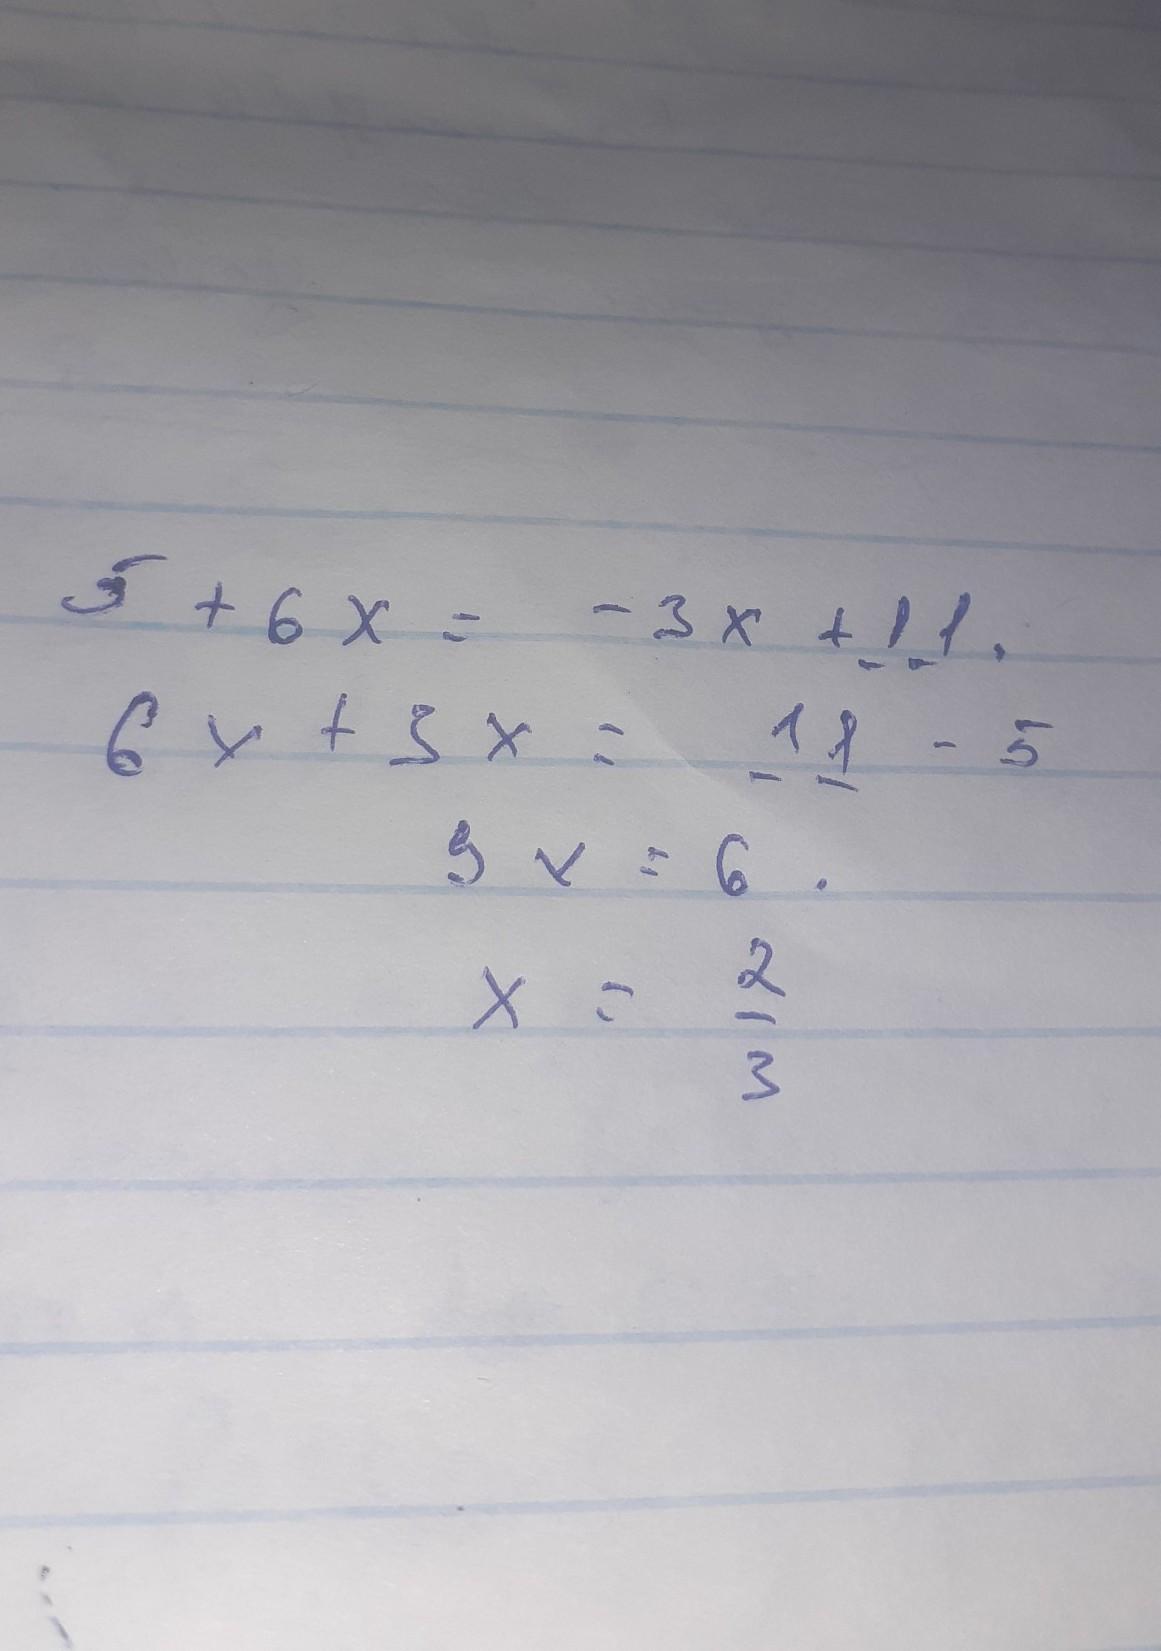 5 + 6x = -3x + 11.
6x + 3x = 11 - 5
9x = 6.
x = 2/3